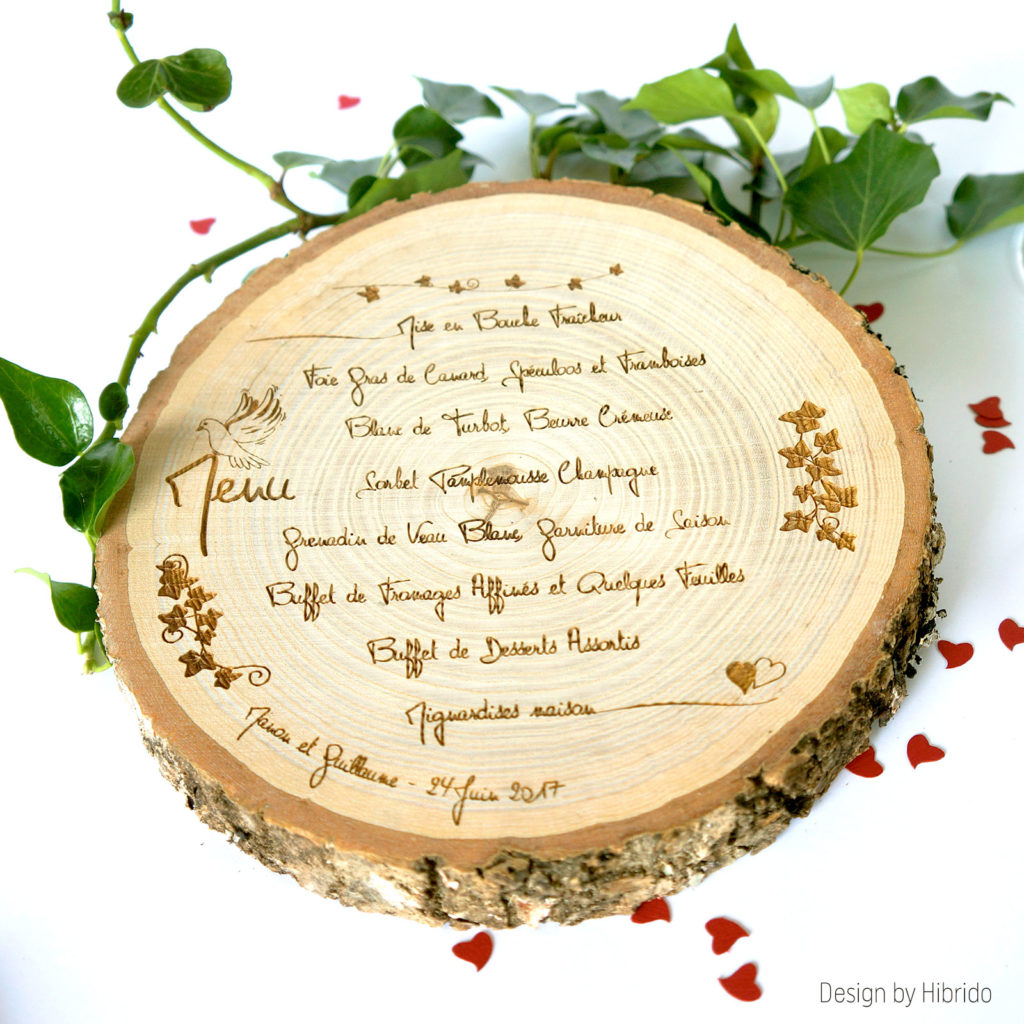 Mise en Bouche Fraîcheur
Foie Gras de Canard, Spéculoos et Framboises
Blanc de Turbot, Beurre Crémeux
Menu
Sorbet Pamplemousse Champagne
Grenadin de Veau Blanc, Garniture de Saison
Buffet de Fromages Affinés et Quelques Feuilles
Buffet de Desserts Assortis
Mignardises maison
Manon et Guillaume - 24 Juin 2017
Design by Hibrido